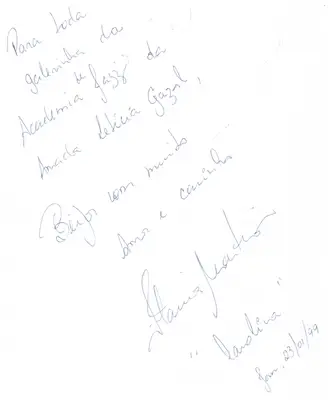 Para toda
galerinha da
Academia de Jazz da
Amada Letícia Gazal,
Beijos com muito
Amor e carinho
Flavia
"Carolina"
23/01/99